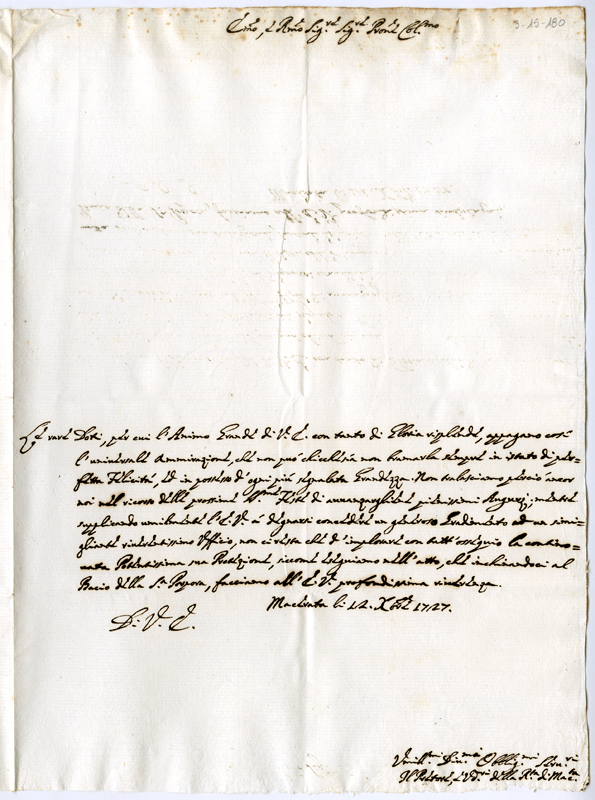 3-15-180
Em̃o, e Rmo Sig.re Sig.re Pronẽ Col.mo
Le rare Doti, per cui l'Animo Grande di V. E. con tanto di Gloria risplende, appagano così
l'universale Ammirazione, che non può chicchesia non bramarla sempre in istato di per-
fetta Felicità, ed in possesso d'ogni più segnalata Grandezza. Non tralasciamo perciò ancor
noi nell ricorso delle prossime SSme Feste di annunziargliene pienissimi Augurj; mentre
supplicando umilmente l'E. V. a degnarsi concedere un generoso Gradimento ad un simi-
gliante riverentissimo Uffizio, non ci resta che d'implorare con tutt'ossequio la contino-
vata Potentissima sua Protezione, siccome eseguiamo nell'atto, che inchinandoci al
Bacio della S.a Porpora, facciamo all'E. V. profondissima riverenza.
Macerata li 12. Xbre 1727.
D. V. E.
Umill.mi Div.mi Obblig.mi Serv.ri
Il Rettore, e Ud.ri della R.ta di Mac.ta